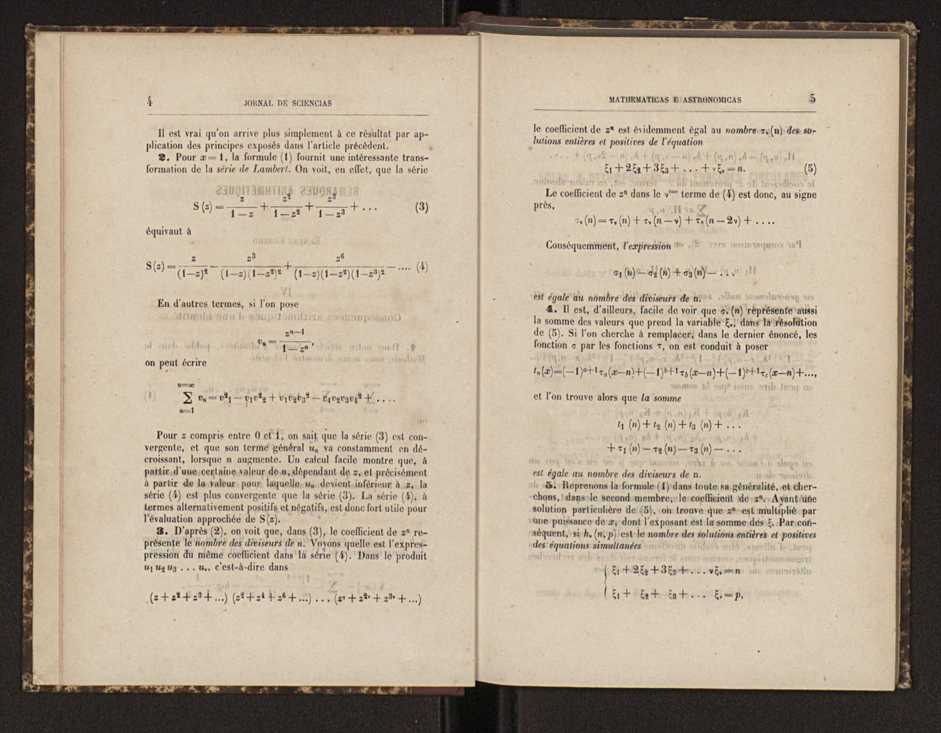 4 JORNAL DE SCIENCIAS
Il est vrai qu'on arrive plus simplement à ce résultat par ap-
plication des principes exposés dans l'article précédent.
2. Pour x = 1, la formule (1) fournit une intéressante trans-
formation de la série de Lambert. On voit, en effet, que la série
S(z) = z/(1−z) + z²/(1−z²) + z³/(1−z³) + . . . (3)
équivaut à
S(z) = z/(1−z)² − z³/((1−z)(1−z²)²) + z⁶/((1−z)(1−z²)(1−z³)²) − .... (4)
En d'autres termes, si l'on pose
vₙ = zⁿ⁻¹/(1−zⁿ),
on peut écrire
n=∞
∑ vₙ = v²₁ − v₁v²₂ + v₁v₂v₃² − v₁v₂v₃v₄² + . . . .
n=1
Pour z compris entre 0 et 1, on sait que la série (3) est con-
vergente, et que son terme général uₙ va constamment en dé-
croissant, lorsque n augmente. Un calcul facile montre que, à
partir d'une certaine valeur de n, dépendant de z, et précisément
à partir de la valeur pour laquelle uₙ devient inférieur à z, la
série (4) est plus convergente que la série (3). La série (4), à
termes alternativement positifs et négatifs, est donc fort utile pour
l'évaluation approchée de S(z).
3. D'après (2), on voit que, dans (3), le coefficient de zⁿ re-
présente le nombre des diviseurs de n. Voyons quelle est l'expres-
pression du même coefficient dans la série (4). Dans le produit
u₁ u₂ u₃ . . . uᵥ, c'est-à-dire dans
(z + z² + z³ + ...) (z² + z⁴ + z⁶ + ...) . . . (zᵛ + z²ᵛ + z³ᵛ + ...)
MATHEMATICAS E ASTRONOMICAS 5
le coefficient de zⁿ est évidemment égal au nombre τᵥ(n) des so-
lutions entières et positives de l'équation
ξ₁ + 2ξ₂ + 3ξ₃ + . . . + νξᵥ = n. (5)
Le coefficient de zⁿ dans le νᵉᵐᵉ terme de (4) est donc, au signe
près,
σᵥ(n) = τᵥ(n) + τᵥ(n − ν) + τᵥ(n − 2ν) + . . . .
Conséquemment, l'expression
σ₁(n) − σ₂(n) + σ₃(n) − . . .
est égale au nombre des diviseurs de n.
4. Il est, d'ailleurs, facile de voir que σᵥ(n) représente aussi
la somme des valeurs que prend la variable ξᵥ, dans la résolution
de (5). Si l'on cherche à remplacer, dans le dernier énoncé, les
fonction σ par les fonctions τ, on est conduit à poser
tₙ(x) = (−1)ᵃ⁺¹τₐ(x−n) + (−1)ᵇ⁺¹τ_b(x−n) + (−1)ᶜ⁺¹τ_c(x−n) + ...,
et l'on trouve alors que la somme
t₁(n) + t₂(n) + t₃(n) + . . .
+ τ₁(n) − τ₂(n) − τ₃(n) − . . .
est égale au nombre des diviseurs de n.
5. Reprenons la formule (1) dans toute sa généralité, et cher-
chons, dans le second membre, le coefficient de zⁿ. Ayant une
solution particulière de (5), on trouve que zⁿ est multiplié par
une puissance de x, dont l'exposant est la somme des ξ. Par con-
séquent, si hᵥ(n, p) est le nombre des solutions entières et positives
des équations simultanées
ξ₁ + 2ξ₂ + 3ξ₃ + . . . νξᵥ = n
ξ₁ + ξ₂ + ξ₃ + . . . ξᵥ = p,